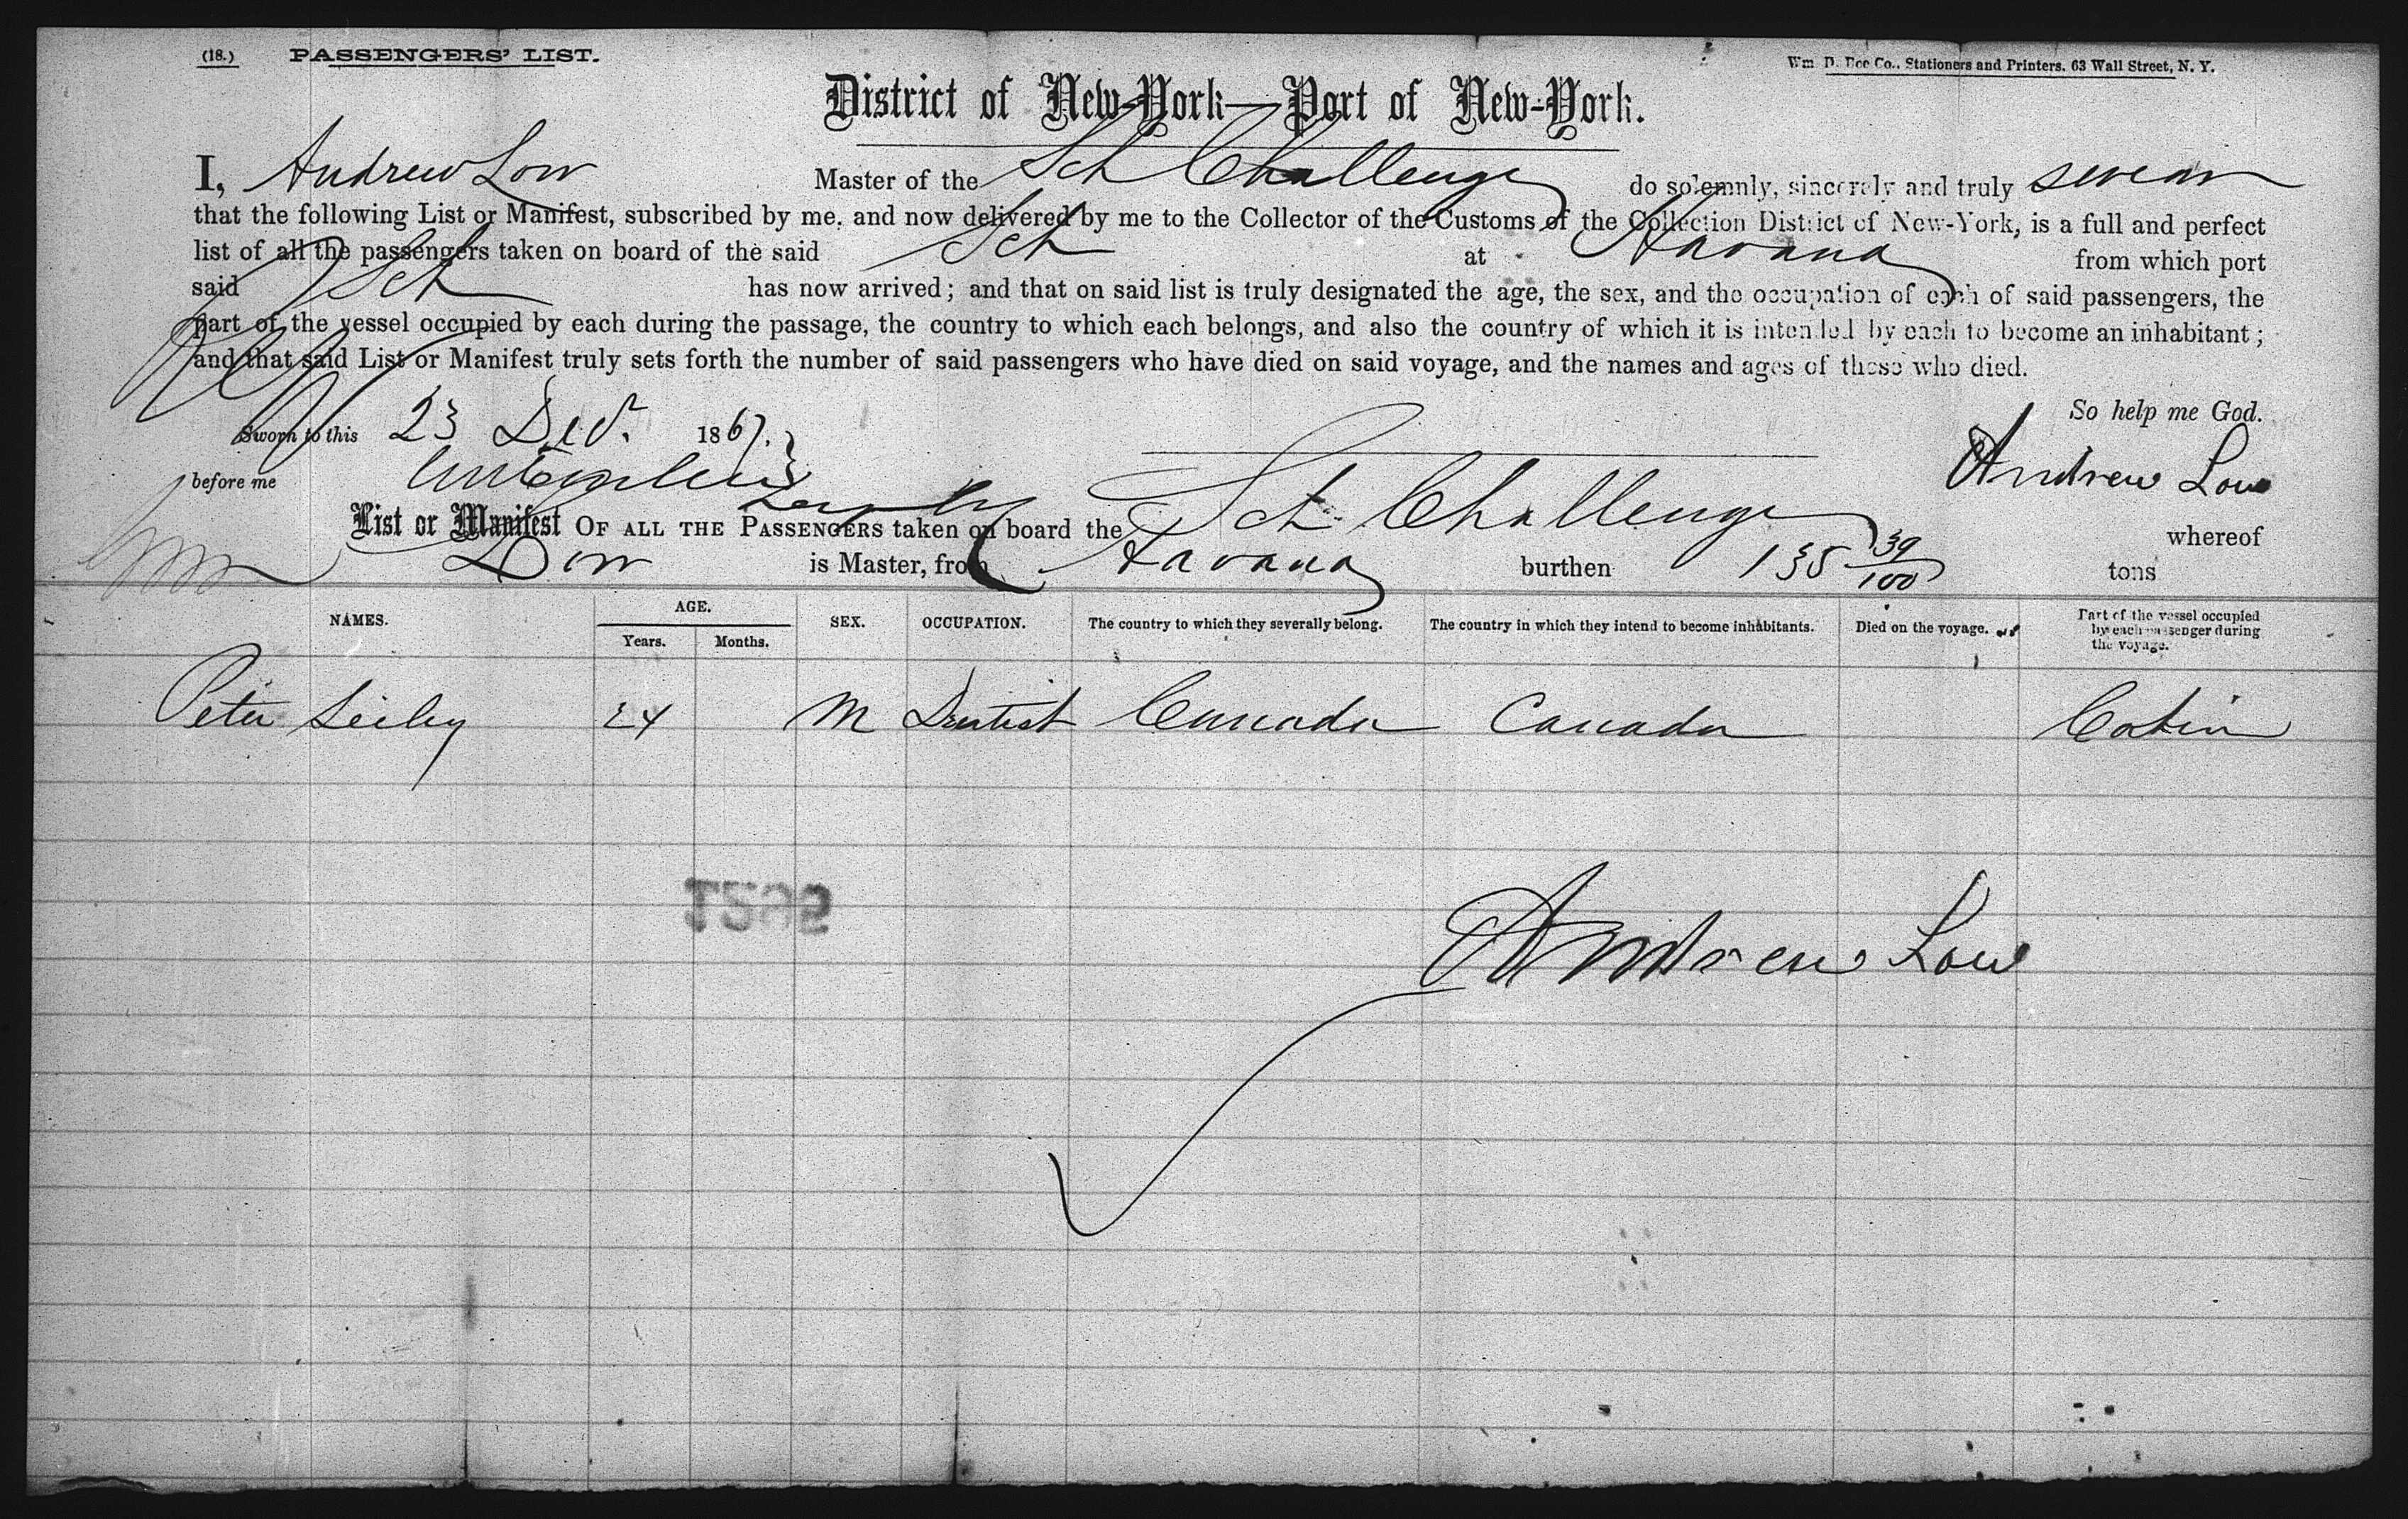 (18.) PASSENGERS' LIST. Wm. D. Roe Co., Stationers and Printers. 63 Wall Street, N. Y.
District of New-York—Port of New-York.
I, Andrew Low Master of the Sch Challenge do solemnly, sincerely and truly swear
that the following List or Manifest, subscribed by me, and now delivered by me to the Collector of the Customs of the Collection District of New-York, is a full and perfect
list of all the passengers taken on board of the said Sch at Havana from which port
said Sch has now arrived; and that on said list is truly designated the age, the sex, and the occupation of each of said passengers, the
part of the vessel occupied by each during the passage, the country to which each belongs, and also the country of which it is intended by each to become an inhabitant;
and that said List or Manifest truly sets forth the number of said passengers who have died on said voyage, and the names and ages of those who died.
So help me God.
Sworn to this 23 Dec. 1867. Andrew Low
before me
List or Manifest OF ALL THE PASSENGERS taken on board the Sch Challenge whereof
Low is Master, from Havana burthen 135 39/100 tons
NAMES. AGE. SEX. OCCUPATION. The country to which they severally belong. The country in which they intend to become inhabitants. Died on the voyage. Part of the vessel occupied by each passenger during the voyage.
Years. Months.
Peter Seiley 24 M Dentist Canada Canada Cabin
Andrew Low